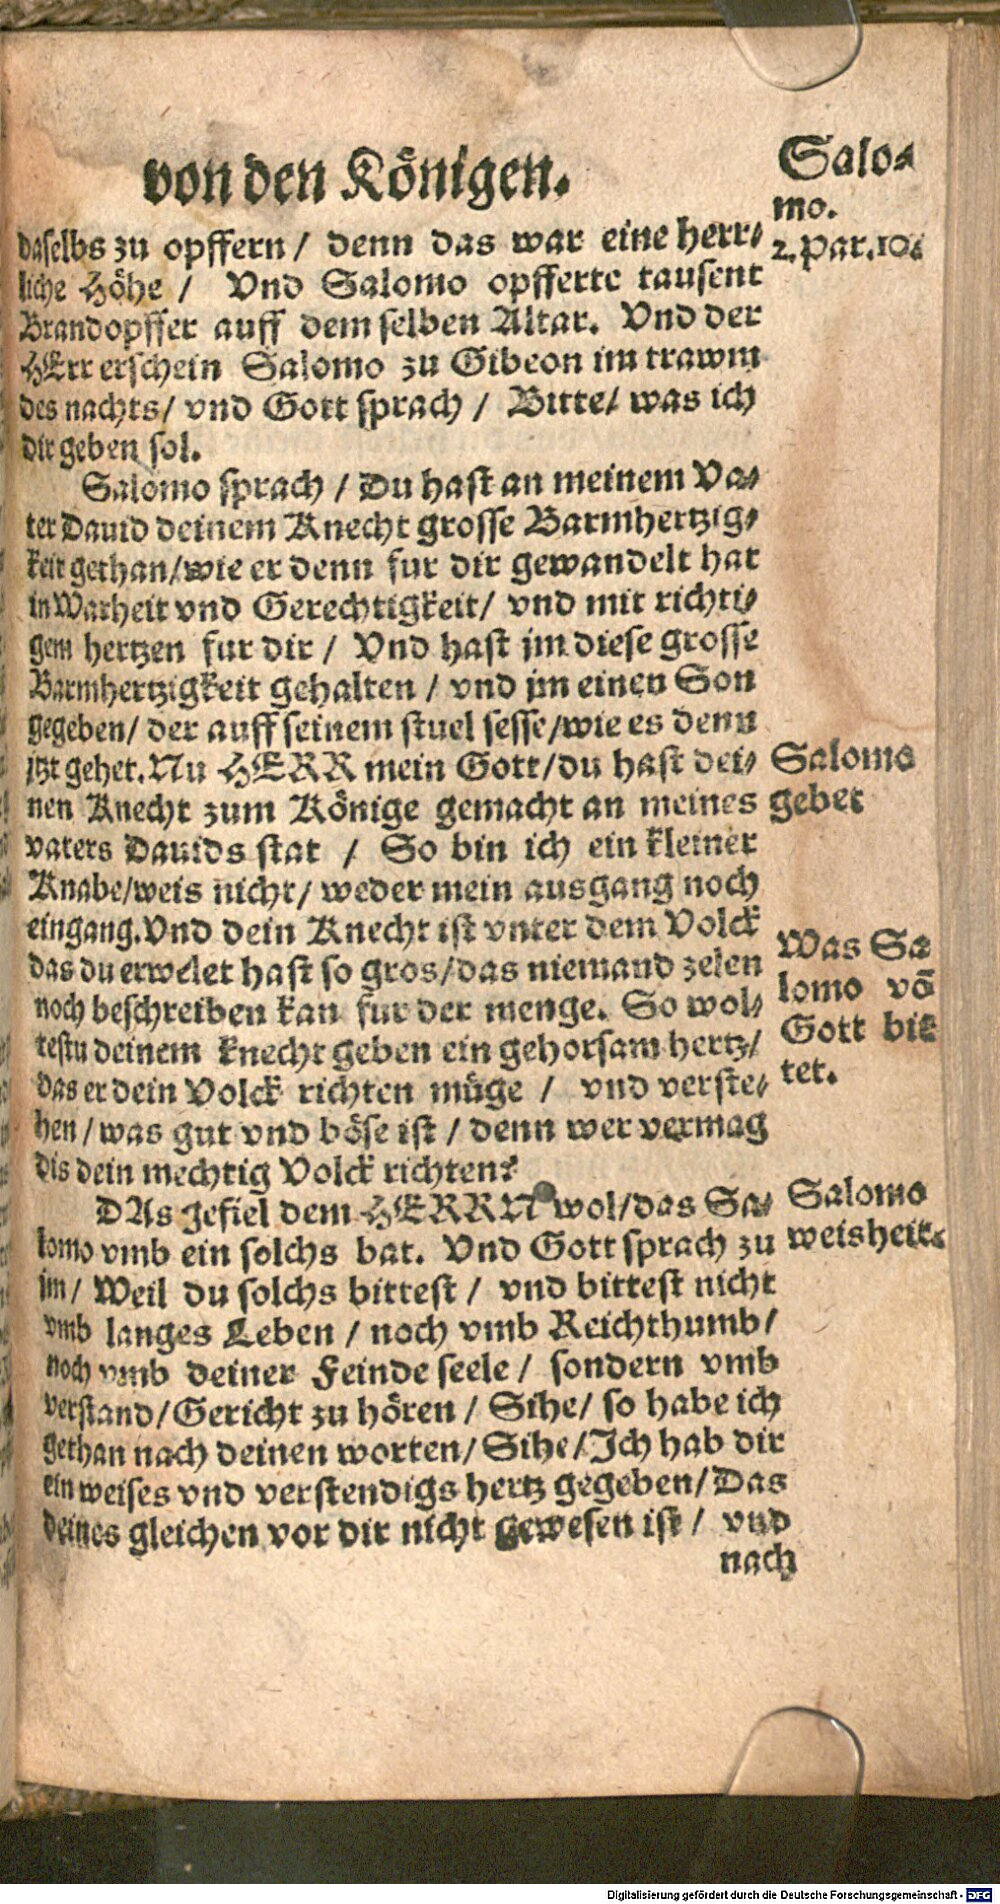 von den Königen.
Salo⸗
mo.
2. Par. 10.
daselbs zu opffern / denn das war eine herr⸗
liche Höhe / Vnd Salomo opfferte tausent
Brandopffer auff dem selben Altar. Vnd der
HErr erschein Salomo zu Gibeon im trawm
des nachts / vnd Gott sprach / Bitte / was ich
dir geben sol.
Salomo sprach / Du hast an meinem Va⸗
ter Dauid deinem Knecht grosse Barmhertzig⸗
keit gethan / wie er denn fur dir gewandelt hat
in Warheit vnd Gerechtigkeit / vnd mit richti⸗
gem hertzen fur dir / Vnd hast jm diese grosse
Barmhertzigkeit gehalten / vnd jm einen Son
gegeben / der auff seinem stuel sesse / wie es denn
jtzt gehet. Nu HERR mein Gott / du hast dei⸗
nen Knecht zum Könige gemacht an meines
vaters Dauids stat / So bin ich ein kleiner
Knabe / weis nicht / weder mein ausgang noch
eingang. Vnd dein Knecht ist vnter dem Volck
das du erwelet hast so gros / das niemand zelen
noch beschreiben kan fur der menge. So wol⸗
testu deinem knecht geben ein gehorsam hertz /
das er dein Volck richten müge / vnd verste⸗
hen / was gut vnd böse ist / denn wer vermag
dis dein mechtig Volck richten?
DAs gefiel dem HERRN wol / das Sa⸗
lomo vmb ein solchs bat. Vnd Gott sprach zu
jm / Weil du solchs bittest / vnd bittest nicht
vmb langes Leben / noch vmb Reichthumb /
noch vmb deiner Feinde seele / sondern vmb
verstand / Gericht zu hören / Sihe / so habe ich
gethan nach deinen worten / Sihe / Ich hab dir
ein weises vnd verstendigs hertz gegeben / Das
deines gleichen vor dir nicht gewesen ist / vnd
nach
Salomo
gebet
Was Sa
lomo vō
Gott bit
tet.
Salomo
weisheit.
Digitalisierung gefördert durch die Deutsche Forschungsgemeinschaft - DFG